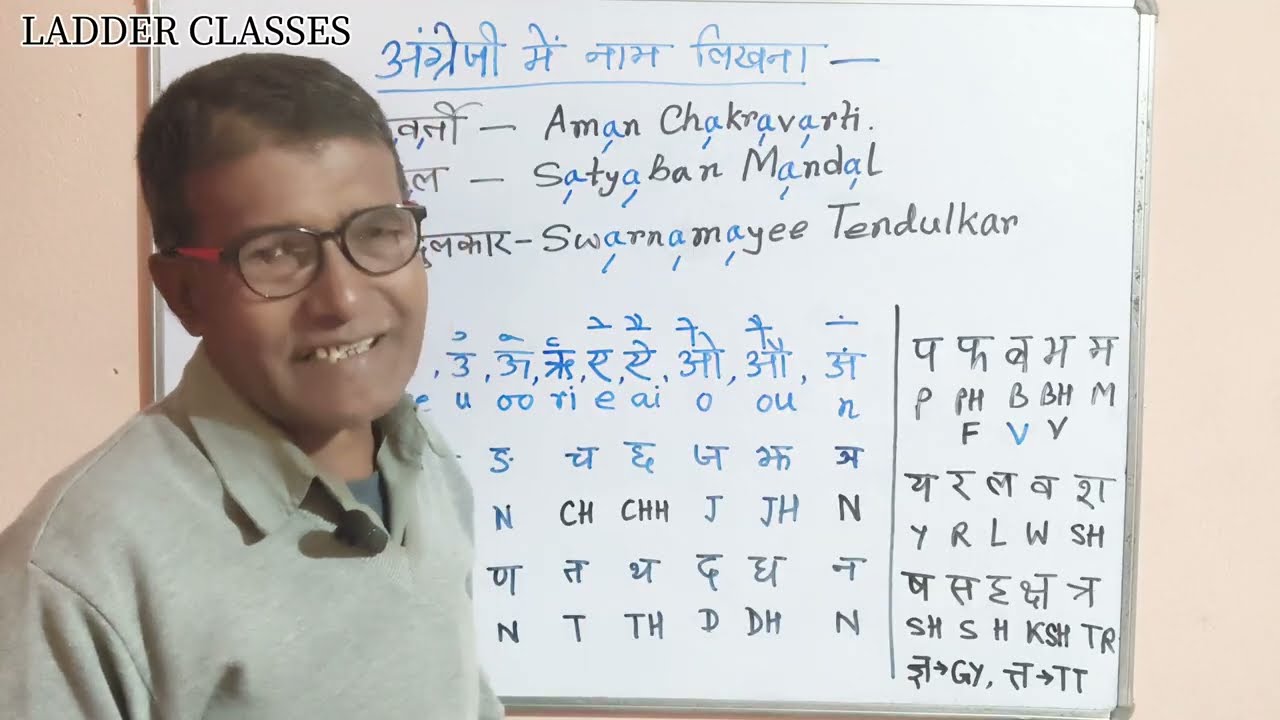 LADDER CLASSES
अंग्रेजी में नाम लिखना —
वर्ती — Aman Chakravarti.
ल — Satyaban Mandal
ुलकार - Swarnamayee Tendulkar
, उ, ऊ, ऋ, ए, ऐ, ओ, औ, अं
e u oo ri e ai o ou n
ङ च छ ज झ ञ
N CH CHH J JH N
ण त थ द ध न
N T TH D DH N
प फ ब भ म
P PH B BH M
F V V
य र ल व श
Y R L W SH
ष स ह क्ष त्र
SH S H KSH TR
ज्ञ→GY, त्त→TT